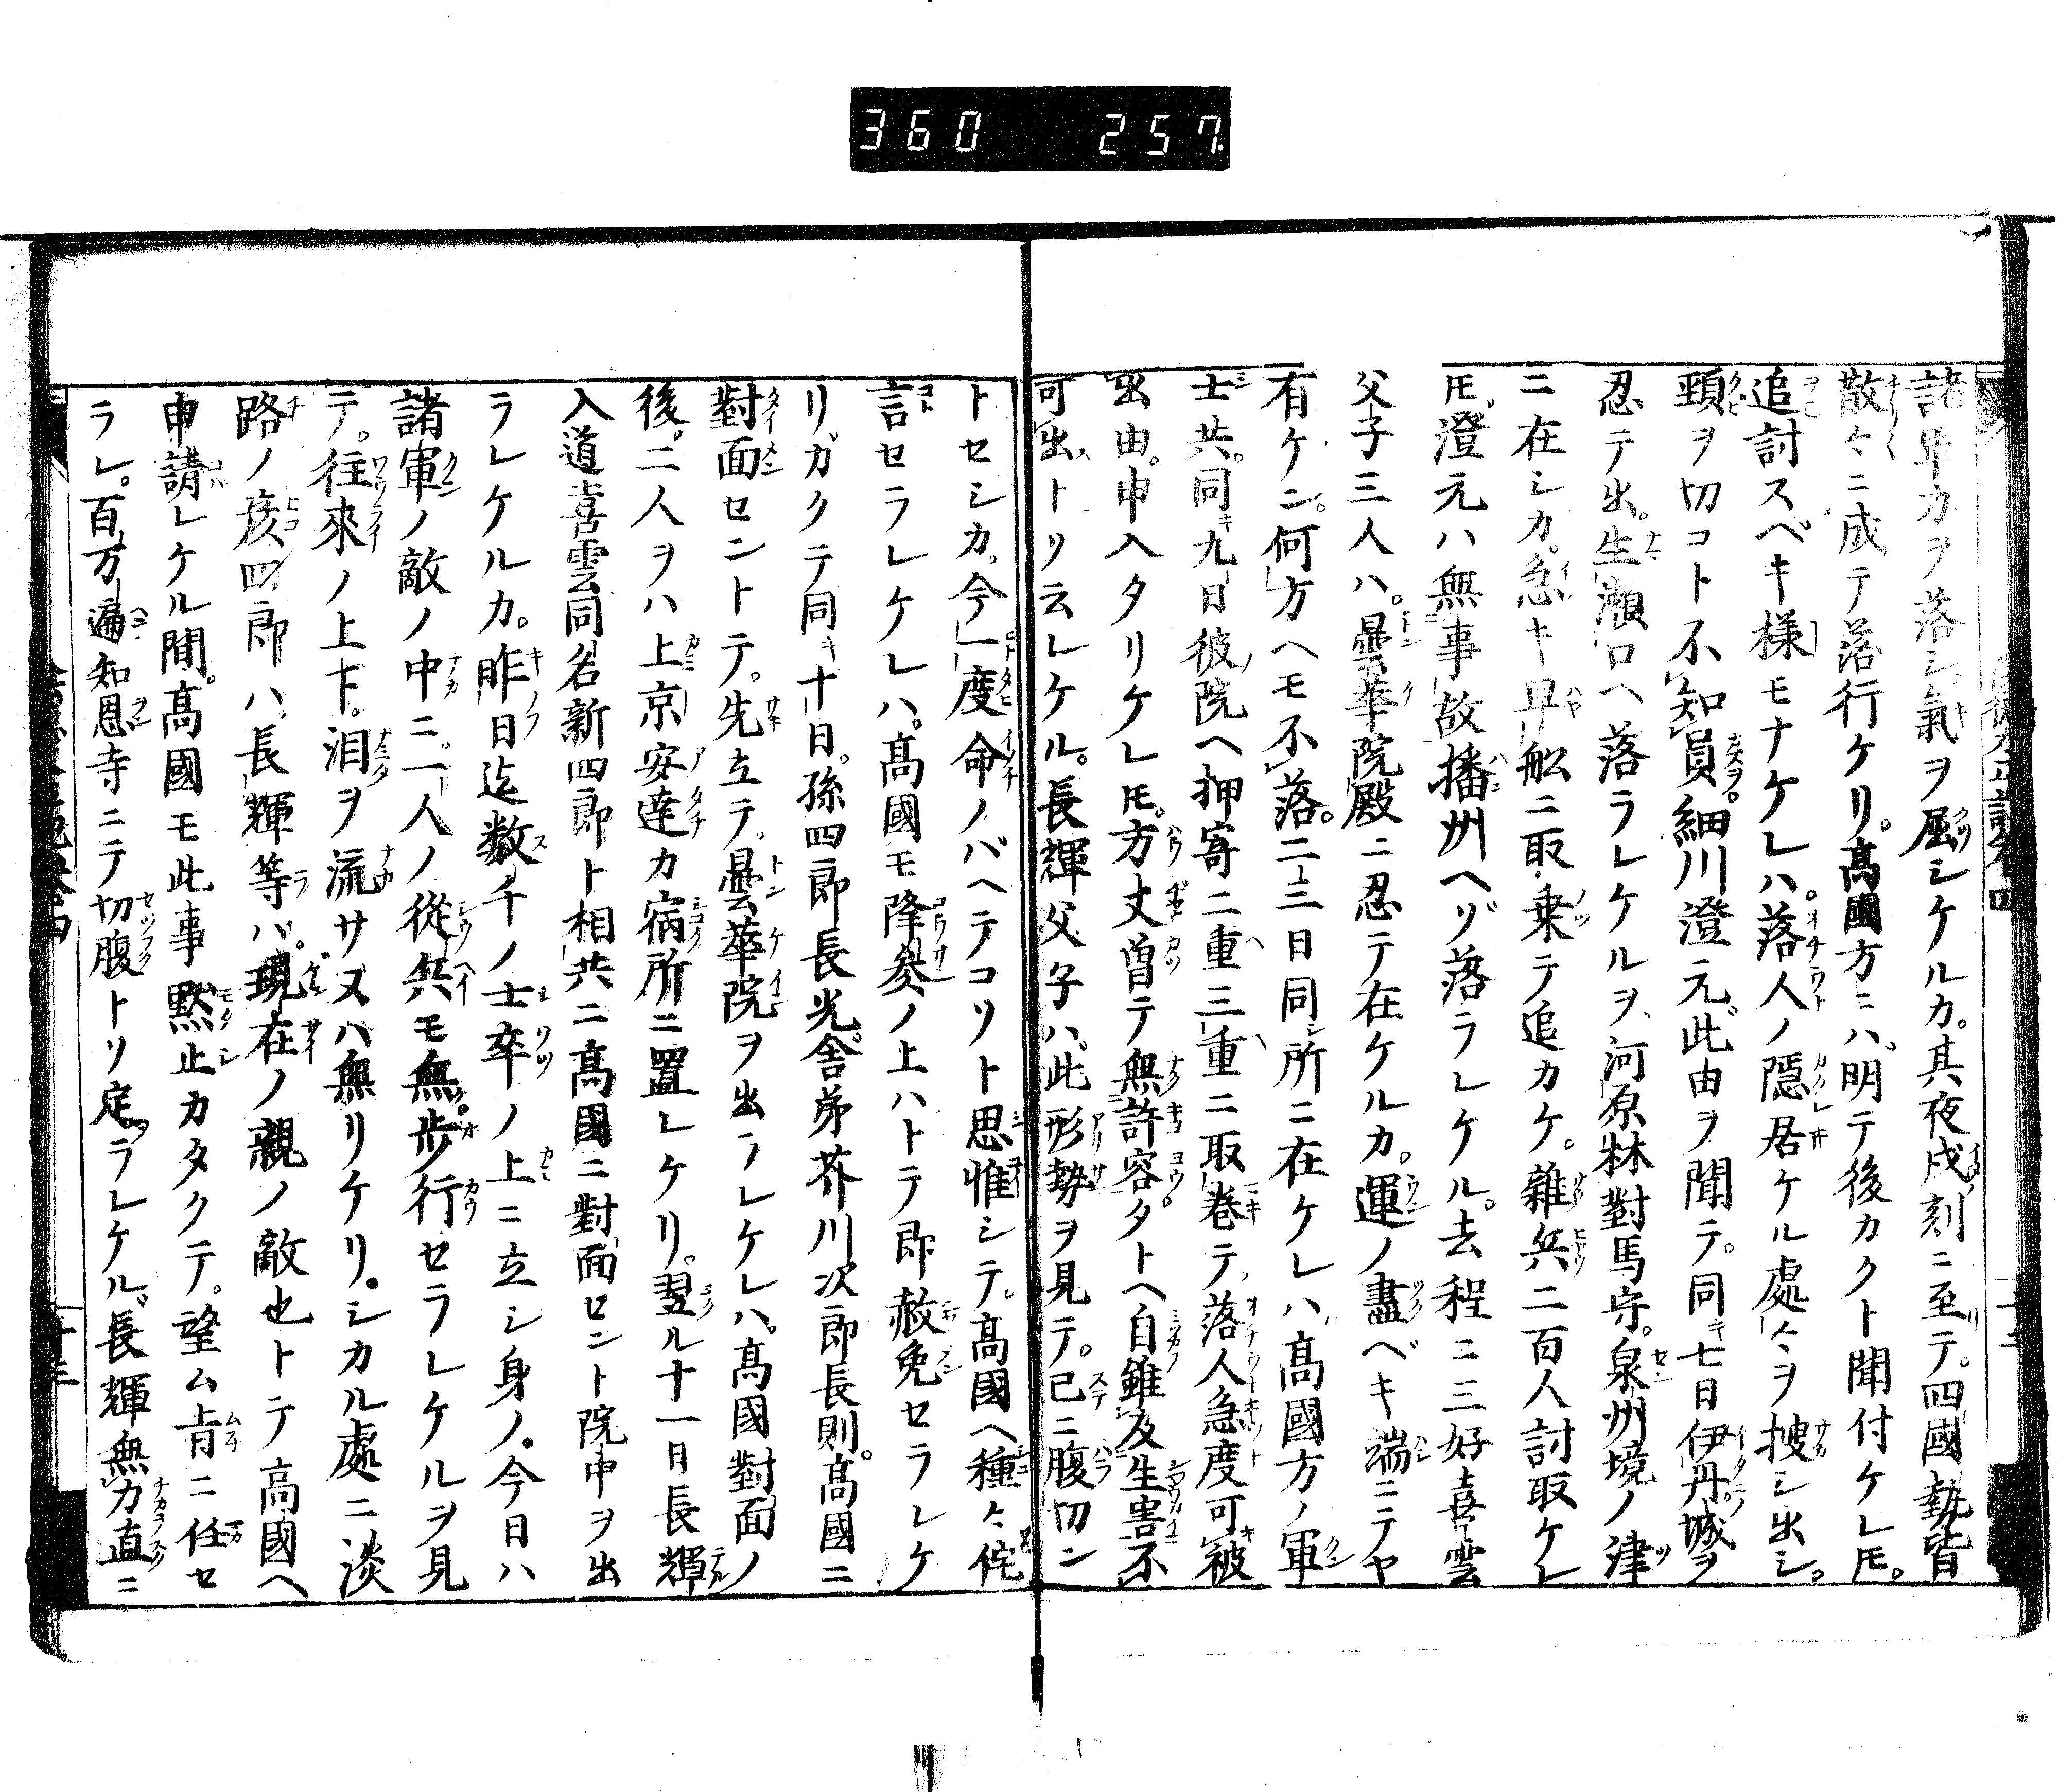 360 257
諸卒力ヲ落シ氣ヲ屈シケルカ。其夜戌刻ニ至テ。四國勢皆
散々ニ成テ落行ケリ。髙國方ニハ明テ後カクト聞付ケレ𪜈。
追討スベキ様モナケレハ。落人ノ隱居ケル處々ヲ搜シ出シ。
頸ヲ切コト不知員。細川澄元此由ヲ聞テ。同キ七日伊丹城ヲ
忍テ出。生瀬口ヘ落ラレケルヲ、河原林對馬守。泉州境ノ津
ニ在シカ。急キ早舩ニ取乗テ追カケ。雜兵二百人討取ケレ
𪜈澄元ハ無事故播州ヘゾ落ラレケル。去程ニ三好喜雲
父子三人ハ。曇華院殿ニ忍テ在ケルカ。運ノ盡ベキ端ニテヤ
有ケン。何方ヘモ不落。二三日同シ所ニ在ケレハ髙國方ノ軍
士共。同キ九日彼院ヘ押寄二重三重ニ取巻テ。落人急度可被
出由。申入タリケレ𪜈。方丈曽テ無許容。タトヘ自雖及生害不
可出トソ云レケル。長輝父子ハ。此形勢ヲ見テ。已ニ腹切ン
トセシカ。今一度命ノバヘテコソト思惟シテ。髙國ヘ種々侘
言セラレケレハ。髙國モ降参ノ上ハトテ即赦免セラレケ
リ。カクテ同キ十日。孫四郎長光舎弟芥川次郎長則。髙國ニ
對面セントテ。先立テ曇華院ヲ出ラレケレハ。髙國對面ノ
後。二人ヲハ上京安達カ宿所ニ置レケリ。翌ル十一日長輝
入道喜雲同名新四郎ト相共ニ髙國ニ對面セント院中ヲ出
ラレケルカ。昨日迄数千ノ士卒ノ上ニ立シ身ノ。今日ハ
諸軍ノ敵ノ中ニ。一人ノ從兵モ無。歩行セラレケルヲ見
テ。往來ノ上下。泪ヲ流サヌハ無リケリ。シカル處ニ淡
路ノ彦四郎ハ。長輝等ハ。現在ノ親ノ敵也トテ高國ヘ
申請レケル間。髙國モ此事黙止カタクテ。望ム㫖ニ任セ
ラレ。百万遍知恩寺ニテ切腹トソ定ラレケル。長輝無力直ニ